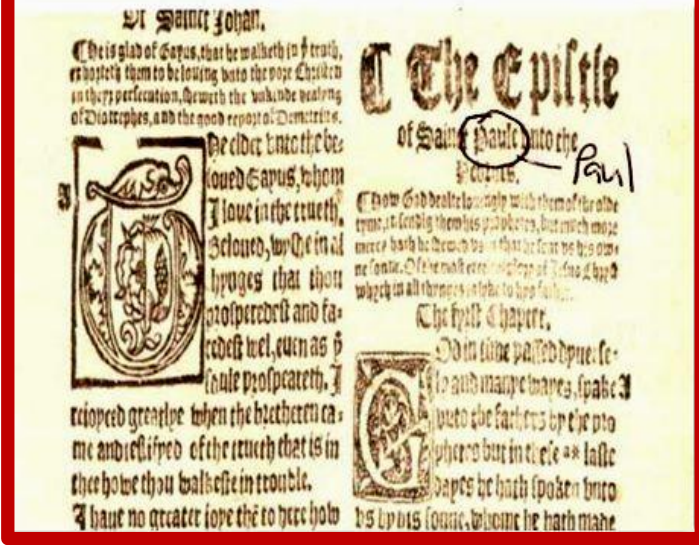 Of Sainct Johan.
He is glad of Gayus, that he walketh in ẏ truth,
exhorteth them to be louing vnto the pore Christen
in theyr persecution, sheweth the vnkinde dealyng
of Diotrephes, and the good report of Demetrius.
The elder vnto the be-
loued Gayus, whom
I loue in the trueth.
Beloued, wyshe in al
thynges that thou
prosperedest and fa-
redest wel, euen as ẏ
soule prospeareth. I
reioyced greatlye when the bretheren ca-
me and testifyed of the trueth that is in
thee howe thou walkeste in trouble.
I haue no greater ioye thē to here how
The Epistle
of Sainct Paule vnto the
Paul
How God dealte louyngly with them of the olde
tyme, ī sendīg them his prophetes, but much more
mercy hath he shewed vs ī that he sent vs his ow-
ne sonne. Of the most excellent glory of Jesus Christ
whych in all thynges is lyke to hys father.
The fyrst Chapter.
God in tyme passed dyuerse-
ly and manye wayes, spake
vnto the fathers by the pro
phetes but in these last
dayes he hath spoken vnto
vs by his sonne, whome he hath made